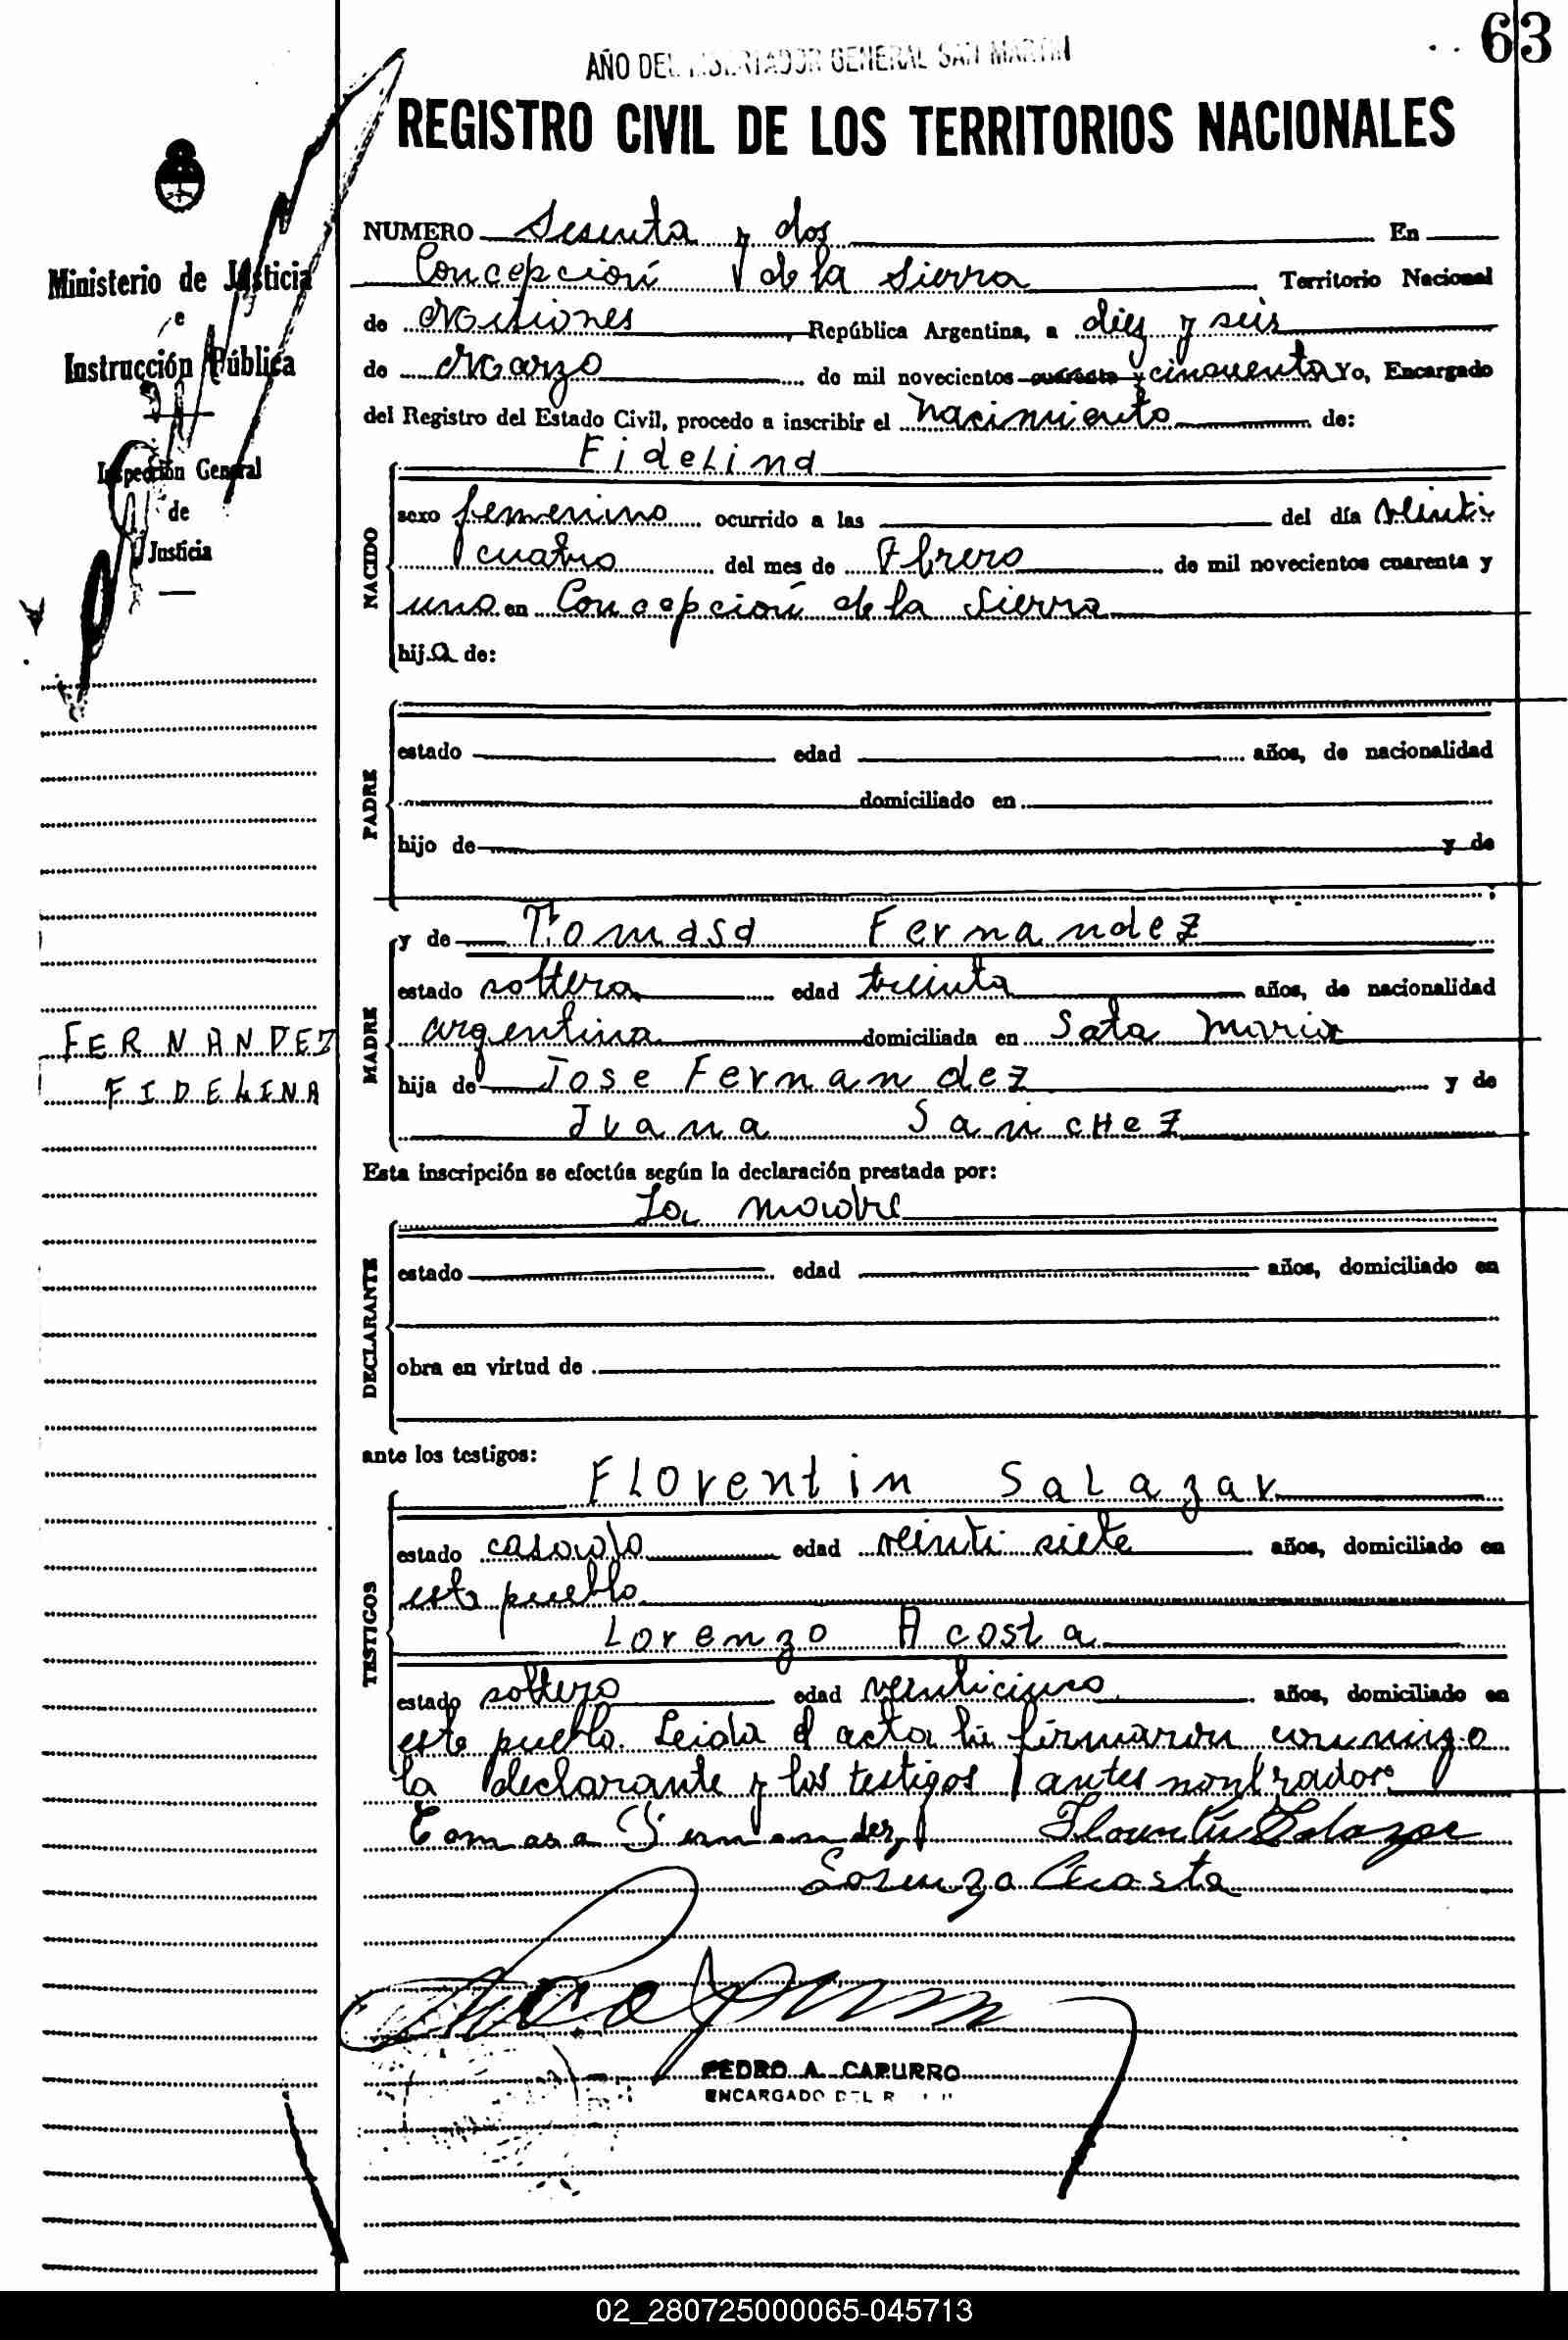 63
AÑO DEL LIBERTADOR GENERAL SAN MARTIN
REGISTRO CIVIL DE LOS TERRITORIOS NACIONALES
Ministerio de Justicia
e
Instrucción Pública
Inspección General
de
Justicia
FERNANDEZ
FIDELINA
NUMERO Sesenta y dos En
Concepción de la Sierra Territorio Nacional
de Misiones, República Argentina, a diez y seis
de Marzo de mil novecientos cuarenta y cincuenta Yo, Encargado
del Registro del Estado Civil, procedo a inscribir el nacimiento de:
Fidelina
NACIDO
sexo femenino ocurrido a las del día veinti
cuatro del mes de Febrero de mil novecientos cuarenta y
uno en Concepción de la Sierra
hija de:
PADRE
estado edad años, de nacionalidad
domiciliado en
hijo de y de
MADRE
y de Tomasa Fernandez
estado soltera edad treinta años, de nacionalidad
argentina domiciliada en Sata Maria
hija de Jose Fernandez y de
Juana Sanchez
Esta inscripción se efectúa según la declaración prestada por:
La madre
DECLARANTE
estado edad años, domiciliado en
obra en virtud de
ante los testigos:
TESTIGOS
Florentin Salazar
estado casado edad veinti siete años, domiciliado en
este pueblo
Lorenzo Acosta
estado soltero edad veinticinco años, domiciliado en
este pueblo. Leida el acta la firmaron conmigo
la declarante y los testigos antes nombrados
Tomasa Fernandez Florentin Salazar
Lorenzo Acosta
PEDRO A. CAPURRO
ENCARGADO DEL R
02_280725000065-045713